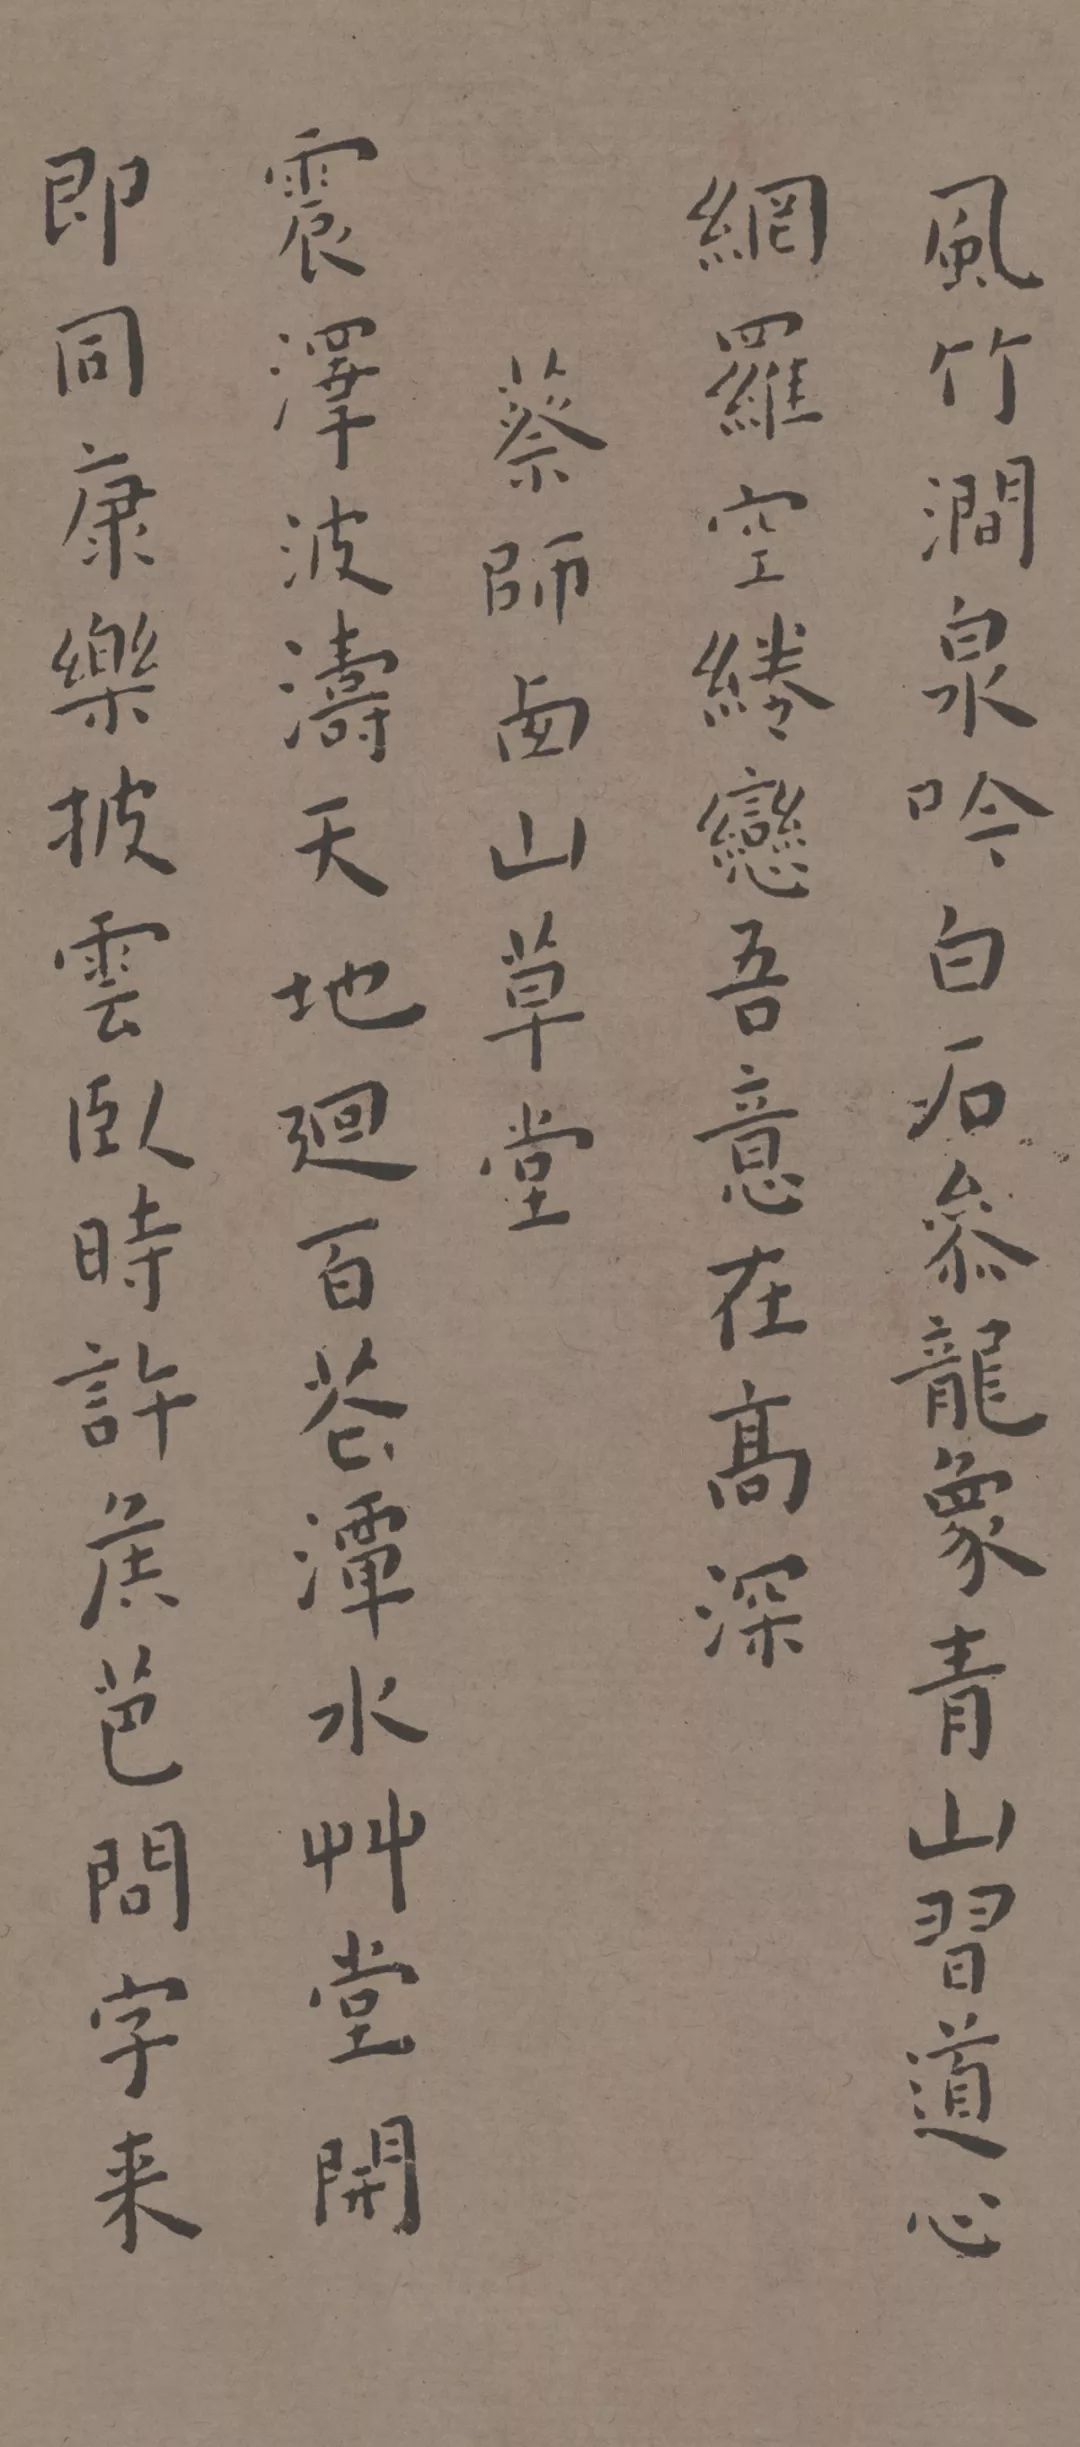 風竹澗泉吟白石參龍象青山習道心
網羅空綣戀吾意在高深
蔡師卥山草堂
震澤波濤天地廻百花潭水艸堂開
即同康樂披雲臥時許侯芭問字来